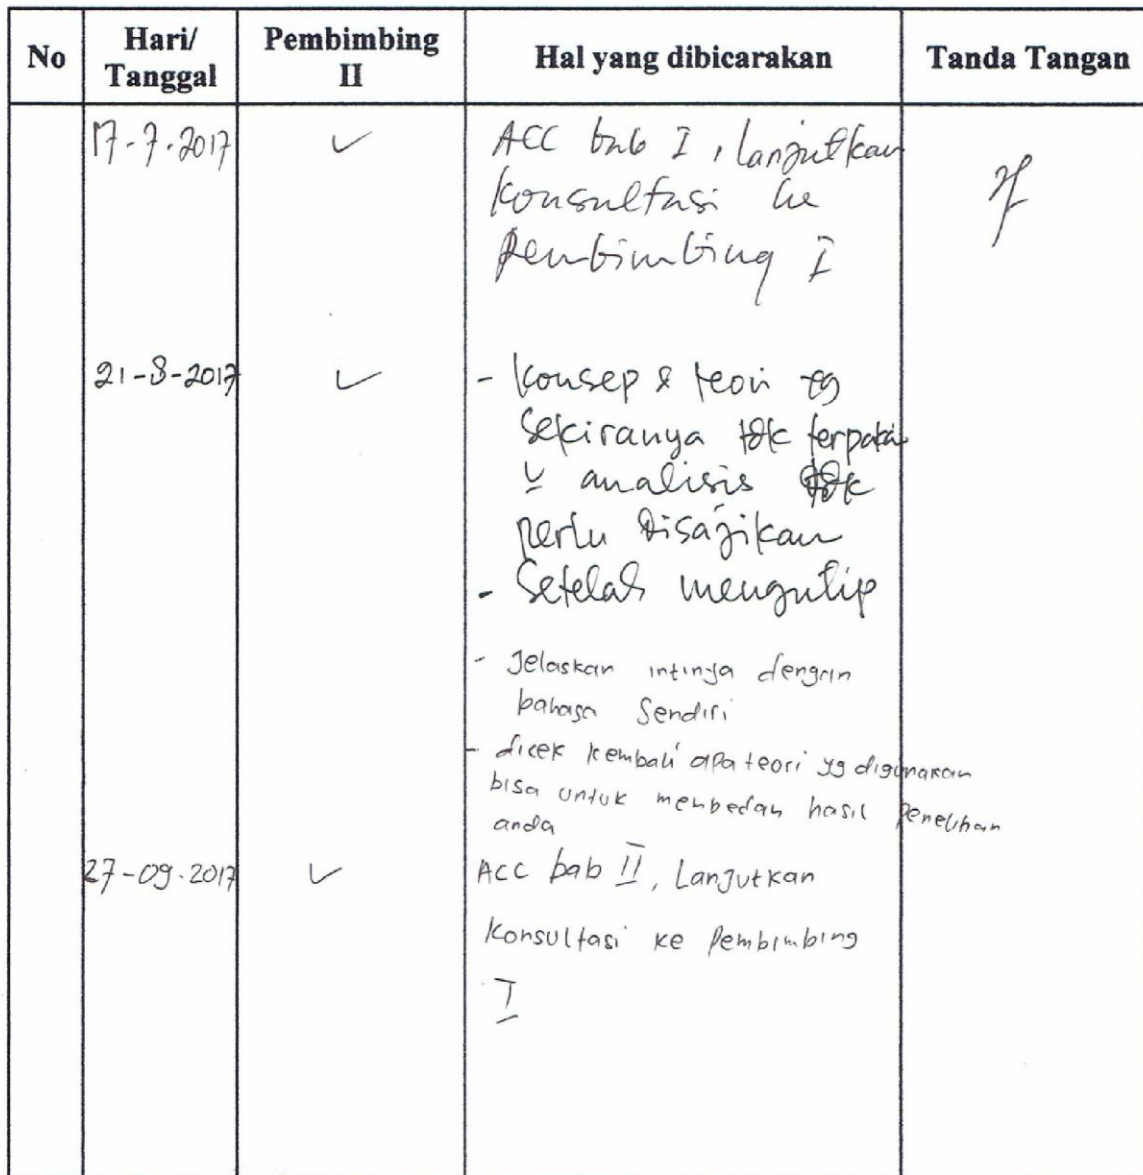 No
Hari/
Tanggal
Pembimbing
II
Hal yang dibicarakan
Tanda Tangan
17-7-2017
✓
ACC bab I, lanjutkan
konsultasi ke
Pembimbing I
21-8-2017
✓
- konsep & teori yg
sekiranya tdk terpakai
analisis tdk
perlu disajikan
- Setelah mengutip
- Jelaskan intinya dengan
bahasa Sendiri
- dicek kembali apa teori yg digunakan
bisa untuk menbedah hasil penelitian
anda
27-09-2017
✓
ACC bab II, Lanjutkan
Konsultasi ke Pembimbing
I